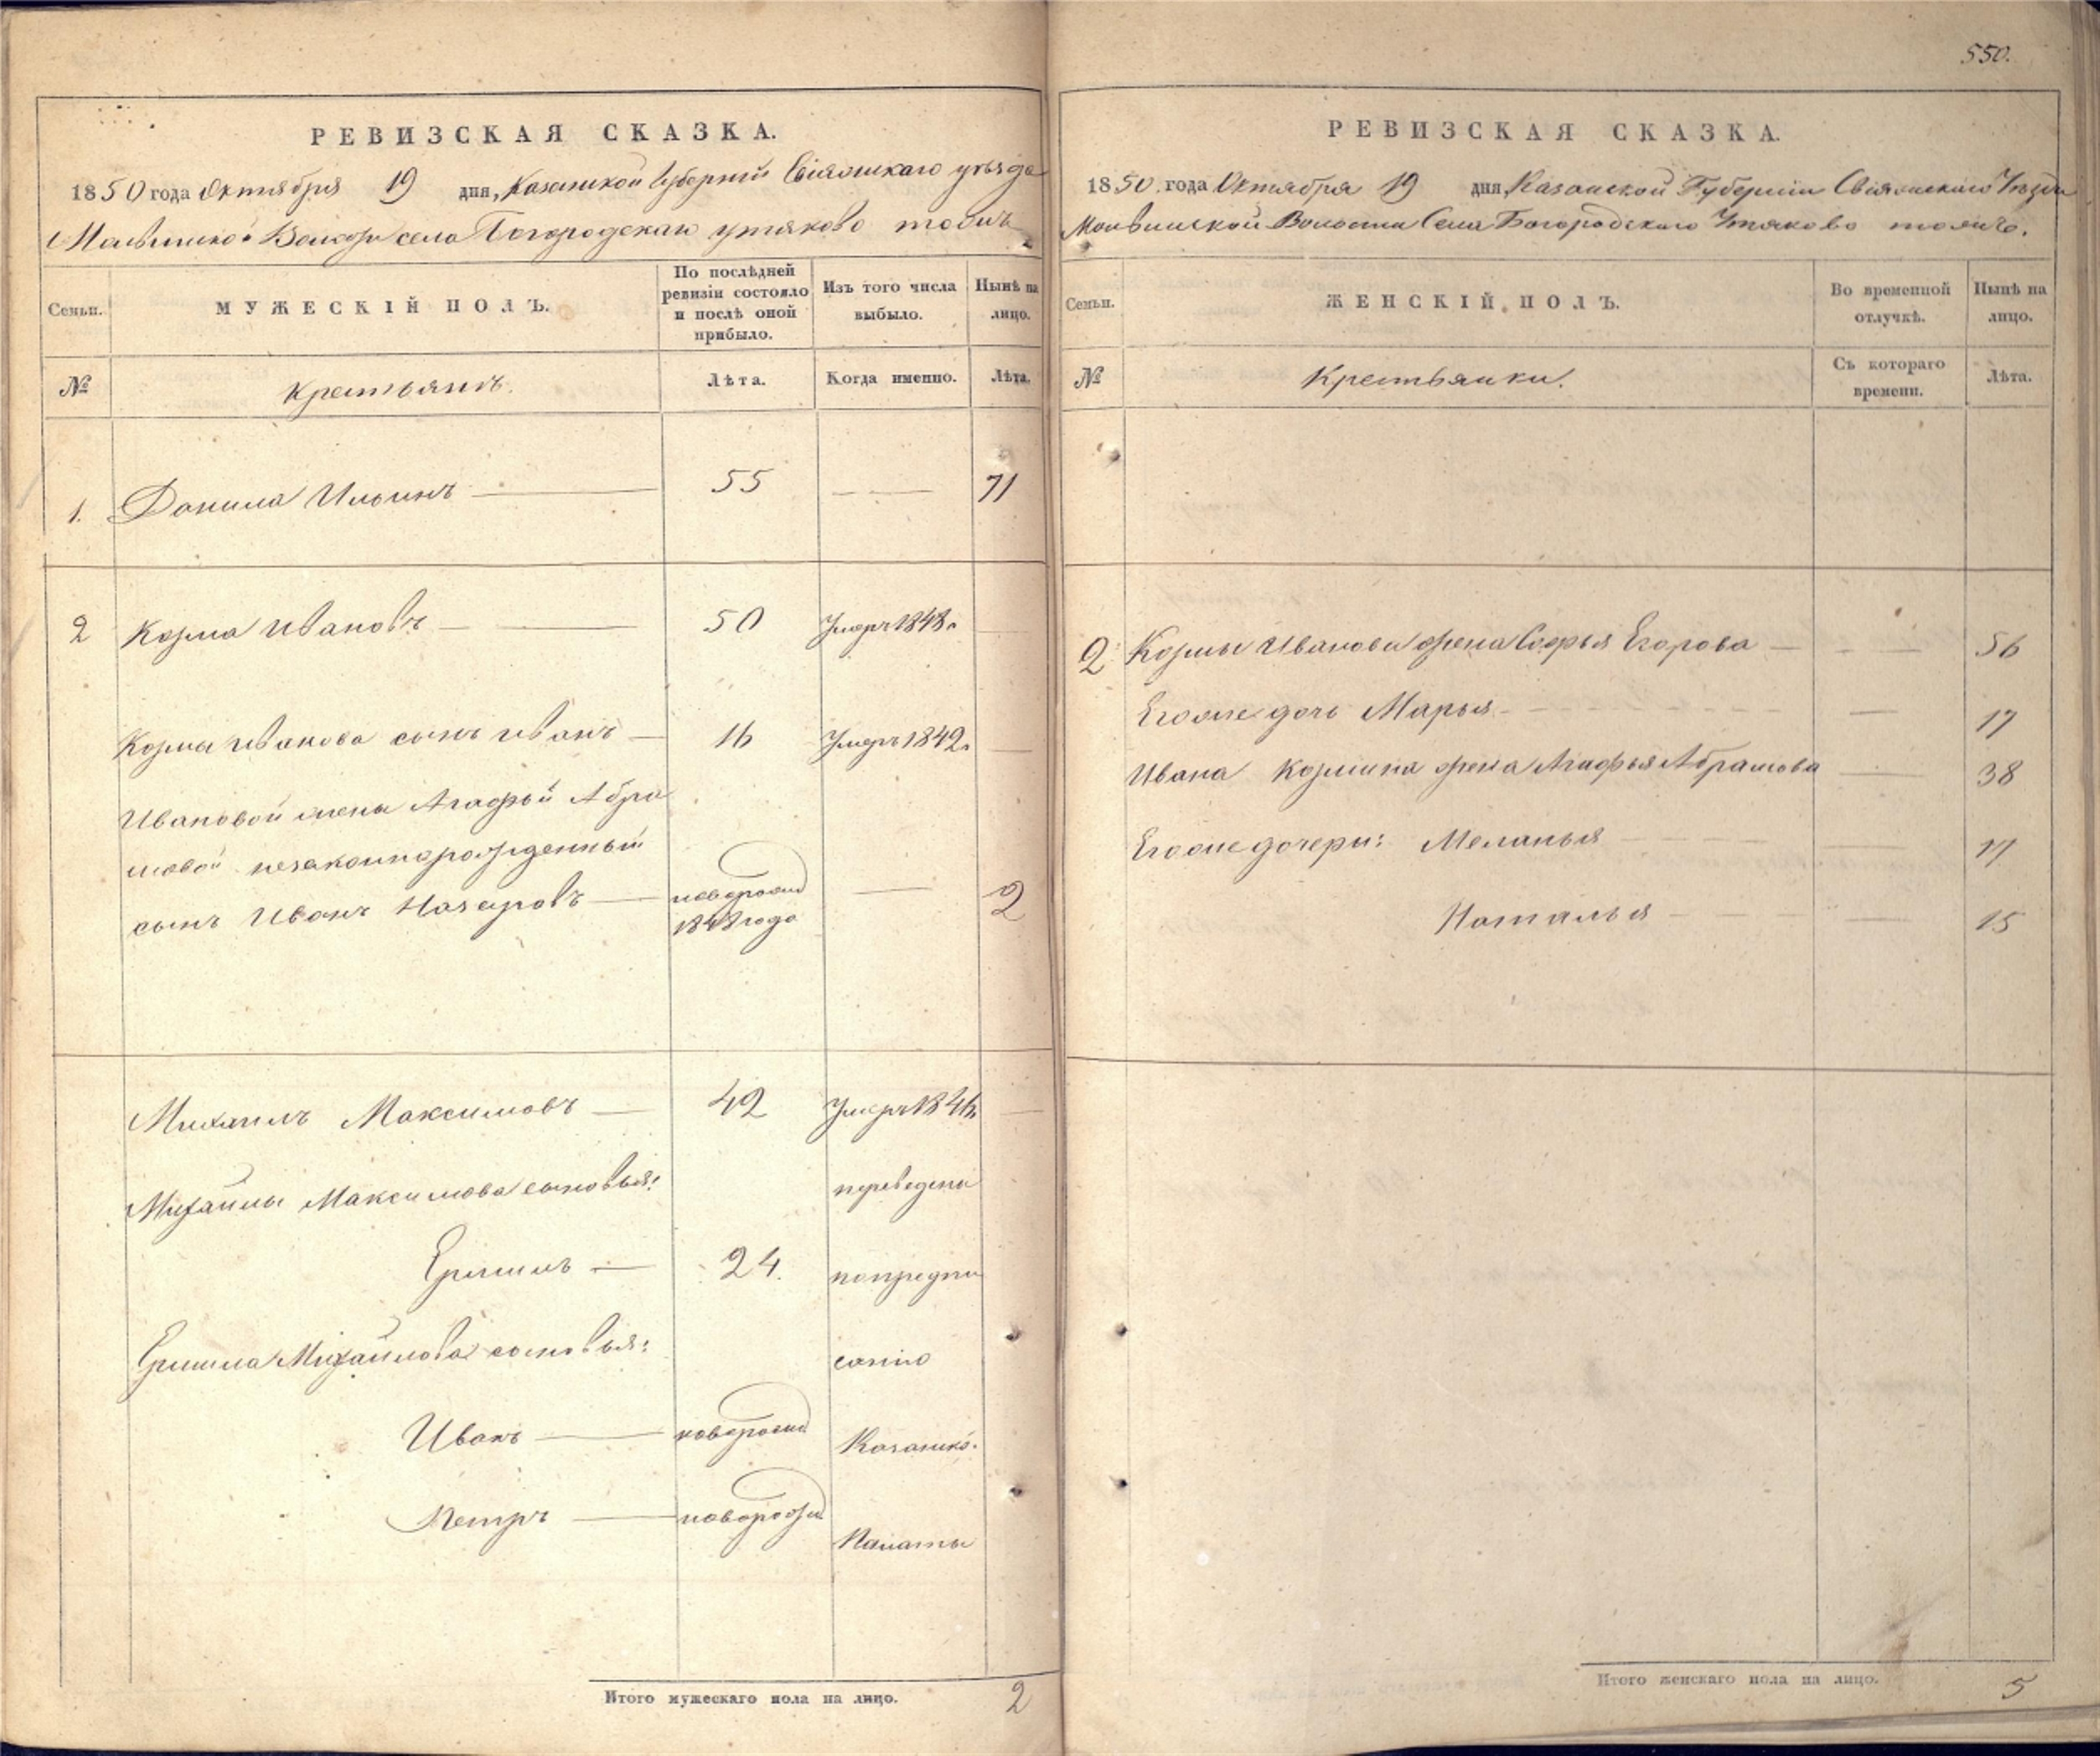 550.
РЕВИЗСКАЯ СКАЗКА.
1850 года Октября 19 дня, Казанской Губерніи Свіяжскаго уѣзда
Волости села Богородскаго утяково тожъ
Семьи.
МУЖЕСКІЙ ПОЛЪ.
По послѣдней ревизіи состояло и послѣ оной прибыло.
Изъ того числа выбыло.
Нынѣ на лицо.
№
Крестьянъ.
Лѣта.
Когда именно.
Лѣта.
1. Данила Ильинъ 55 71
2 Козма Ивановъ 50 Умеръ 1848.
Козмы Иванова сынъ Иванъ 16 Умеръ 1842.
Ивановой жены Агафьи Абра
мовой незаконнорожденный
сынъ Иванъ Назаровъ новорожд 2
1848 года
Михаилъ Максимовъ 42 Умеръ 1846.
Михайлы Максимова сыновья: переведены
24. по предпи
Михайлова сыновья: санію
Иванъ новорожд Казанской
Петръ новорожд Палаты
Итого мужескаго пола на лицо. 2
РЕВИЗСКАЯ СКАЗКА.
1850. года Октября 19 дня, Казанской Губерніи Свіяжскаго Уѣзда
Волости Села Богородскаго Утяково тожъ.
Семьи.
ЖЕНСКІЙ ПОЛЪ.
Во временной отлучкѣ.
Нынѣ на лицо.
№
Крестьянки.
Съ котораго времени.
Лѣта.
2 Козмы Иванова жена Софья Егорова 56
Егоже дочь Марья 17
Ивана Козмина жена Агафья Абрамова 38
Егоже дочери: Меланья 17
Наталья 15
Итого женскаго пола на лицо. 5